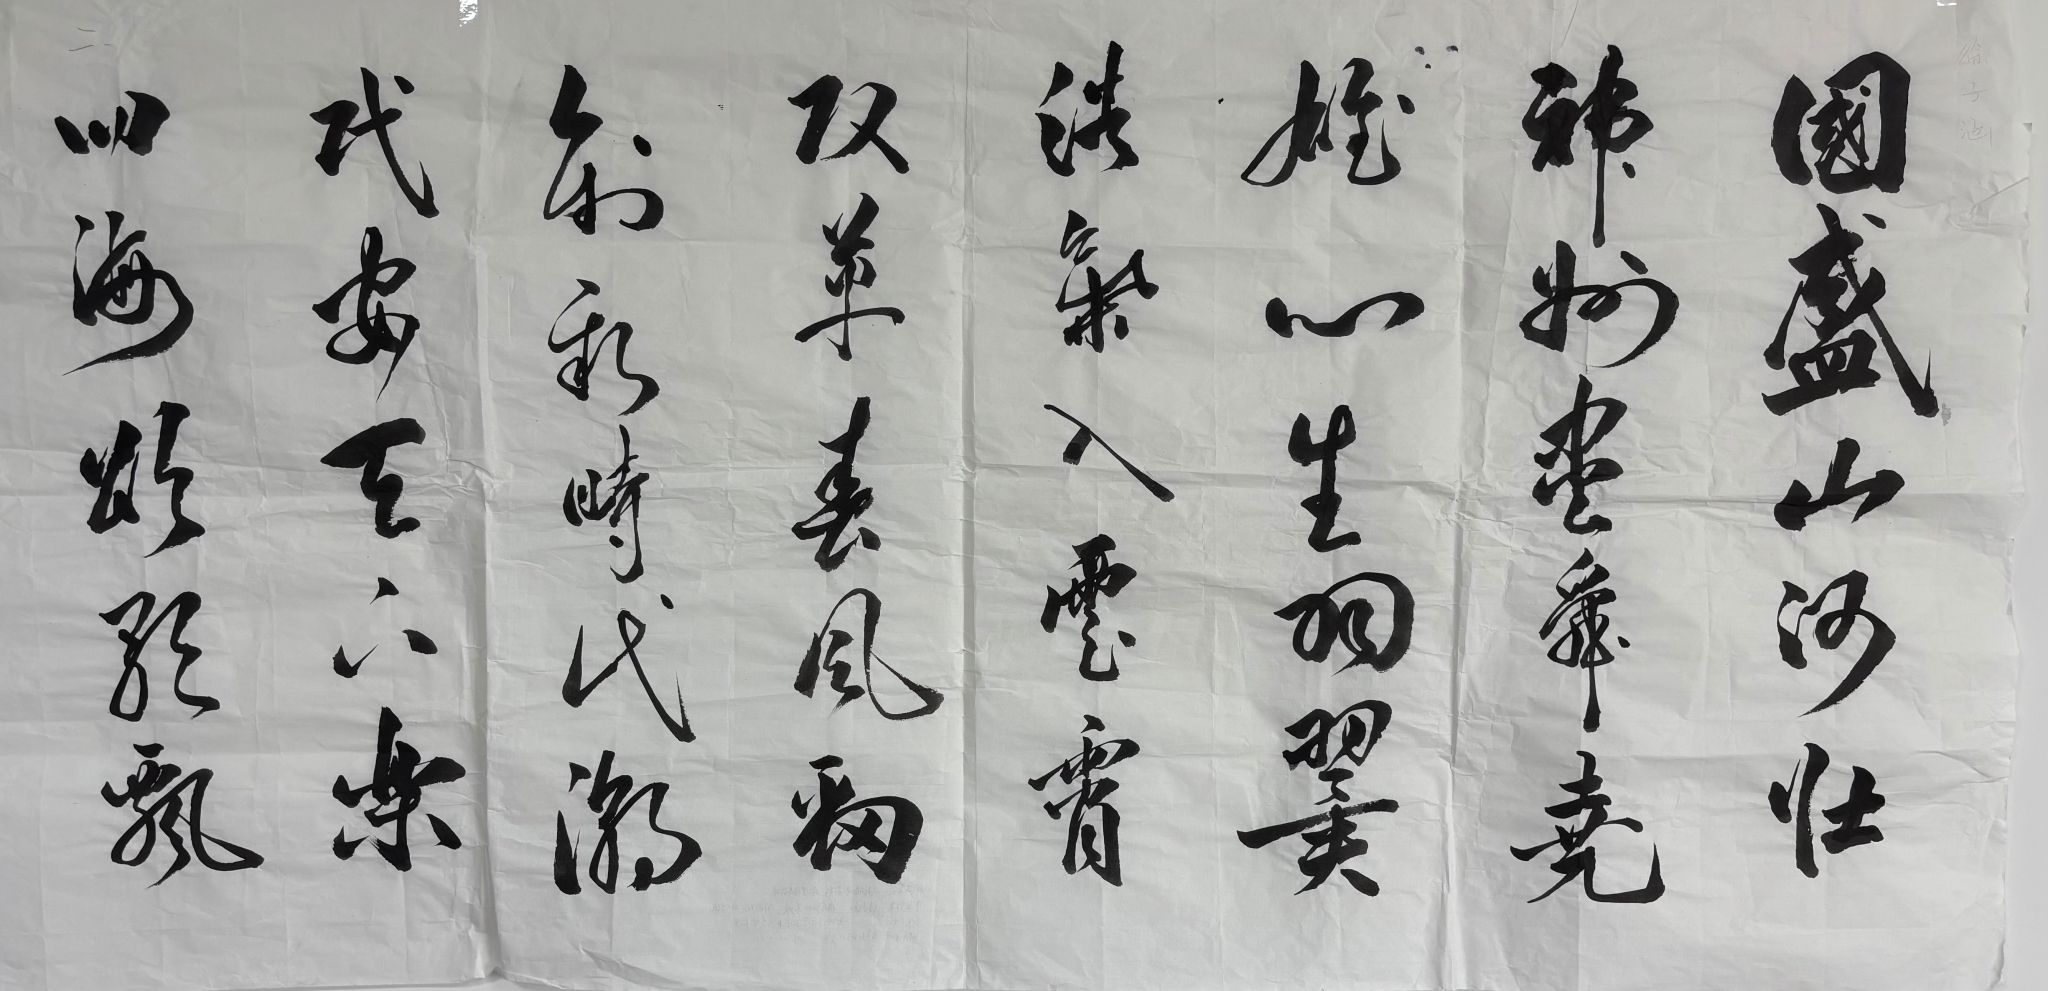 國盛山河壯
神州盡舜堯
雄心生羽翼
浩氣入雲霄
改革春風勁
創新時代潮
民安天下樂
四海頌歌飄